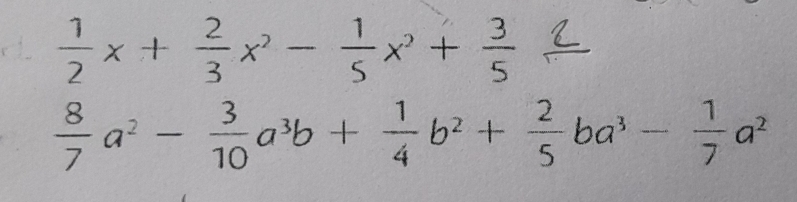 1/2 x + 2/3 x² − 1/5 x² + 3/5 2
8/7 a² − 3/10 a³b + 1/4 b² + 2/5 ba³ − 1/7 a²